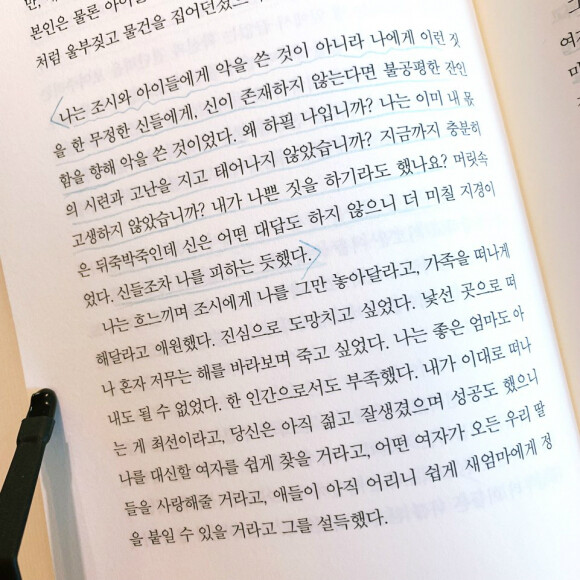 본인은 물론 아이들
처럼 울부짖고 물건을 집어던졌으
나는 조시와 아이들에게 악을 쓴 것이 아니라 나에게 이런 짓
을 한 무정한 신들에게, 신이 존재하지 않는다면 불공평한 잔인
함을 향해 악을 쓴 것이었다. 왜 하필 나입니까? 나는 이미 내 몫
의 시련과 고난을 지고 태어나지 않았습니까? 지금까지 충분히
고생하지 않았습니까? 내가 나쁜 짓을 하기라도 했나요? 머릿속
은 뒤죽박죽인데 신은 어떤 대답도 하지 않으니 더 미칠 지경이
었다. 신들조차 나를 피하는 듯했다.
나는 흐느끼며 조시에게 나를 그만 놓아달라고, 가족을 떠나게
해달라고 애원했다. 진심으로 도망치고 싶었다. 낯선 곳으로 떠
나 혼자 저무는 해를 바라보며 죽고 싶었다. 나는 좋은 엄마도 아
내도 될 수 없었다. 한 인간으로서도 부족했다. 내가 이대로 떠나
는 게 최선이라고, 당신은 아직 젊고 잘생겼으며 성공도 했으니
나를 대신할 여자를 쉽게 찾을 거라고, 어떤 여자가 오든 우리 딸
들을 사랑해줄 거라고, 애들이 아직 어리니 쉽게 새엄마에게 정
을 붙일 수 있을 거라고 그를 설득했다.